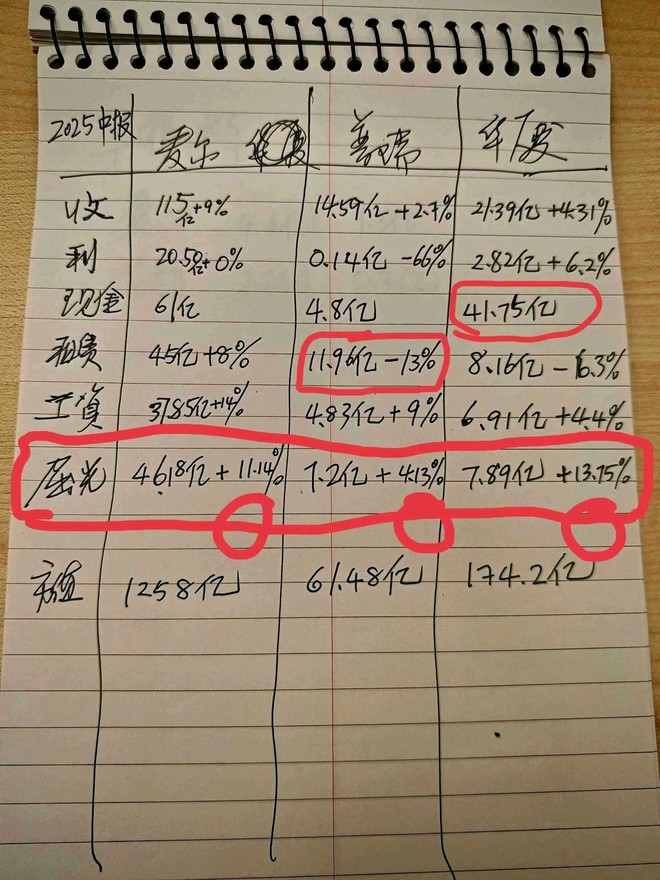 2025中报 爱尔 普瑞 华厦
收 115亿+9% 14.59亿+2.7% 21.39亿+4.31%
利 20.50亿+0% 0.14亿-66% 2.82亿+6.2%
现金 61亿 4.8亿 41.75亿
租赁 45亿+8% 11.96亿-13% 8.16亿-16.3%
工资 37.85亿+14% 4.83亿+9% 6.91亿+4.4%
屈光 46.18亿+11.14% 7.2亿+4.13% 7.89亿+13.75%
市值 1258亿 61.48亿 174.2亿